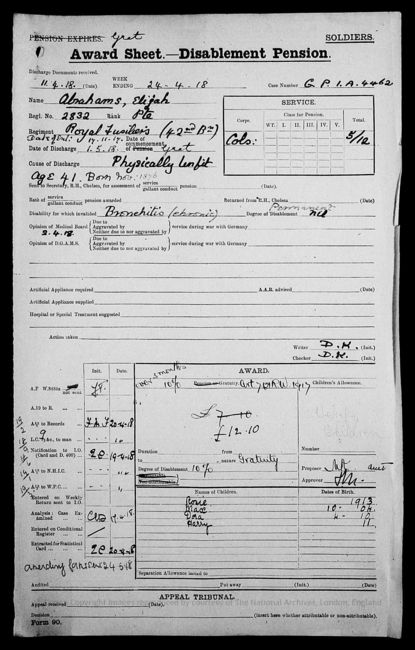 PENSION EXPIRES. Grat SOLDIERS.
Award Sheet.—Disablement Pension.
Discharge Documents received.
11.4.18. WEEK ENDING 24-4-18 Case Number G.P.I.A.4462
Name Abrahams, Elijah
Regl. No. 2832 Rank Pte
Regiment Royal Fusiliers (42nd Bn)
Date of Enl: 17.11.17. Date of commencement
Date of Discharge 1.5.18. of Pension Grat
Cause of Discharge Physically Unfit
Age 41. Born Nov: 1876
SERVICE.
Corps. Class for Pension. Total.
WT. I. II. III. IV. V.
Cols: 5/12
Sent to Secretary, R.H., Chelsea, for assessment of service gallant conduct pension (Date).
Rank of service gallant conduct pension awarded Returned from R.H., Chelsea (Date)
Disability for which invalided Bronchitis (chronic) Degree of Disablement Permanent nil
Opinion of Medical Board 3.4.18. Due to Aggravated by Neither due to nor aggravated by service during war with Germany
Opinion of D.G.A.M.S. Due to Aggravated by Neither due to nor aggravated by service during war with Germany
Artificial Appliance required A.A.R. advised (Date)
Artificial Appliance supplied
Hospital or Special Treatment suggested
Action taken
Writer D.H. (Init.)
Checker D.H. (Init.)
Init. Date.
A.F. W.5030a not
A.10 to R.
A.9 to Records 20-4-18
I.C. to man
Notification to I.O. (Card and D. 400) 19-4-18
A.9 to N.H.I.C.
A.9 to W.P.C.
Entered on Weekly Return sent to I.O.
Analysis: Case Examined
Entered on Conditional Register
Extracted for Statistical Card 20-4-18
24.5.18
AWARD.
10% Pension or Gratuity. Art 7(1) R.W. 1917 Children's Allowance.
£7-10
£12.10
Number
Duration from
to nature Gratuity
Degree of Disablement 10%
Proposer
Approver
Names of Children. Dates of Birth.
Rosie 1913
Max 10- 04
Dora 4- 10
Harry 11
Separation Allowance issued to
Audited Put away (Init.) (Date)
APPEAL TRIBUNAL.
Copyright images reproduced by courtesy of The National Archives, London, England
Appeal received (Date).
Decision (insert here whether attributable or non-attributable).
Form 90.